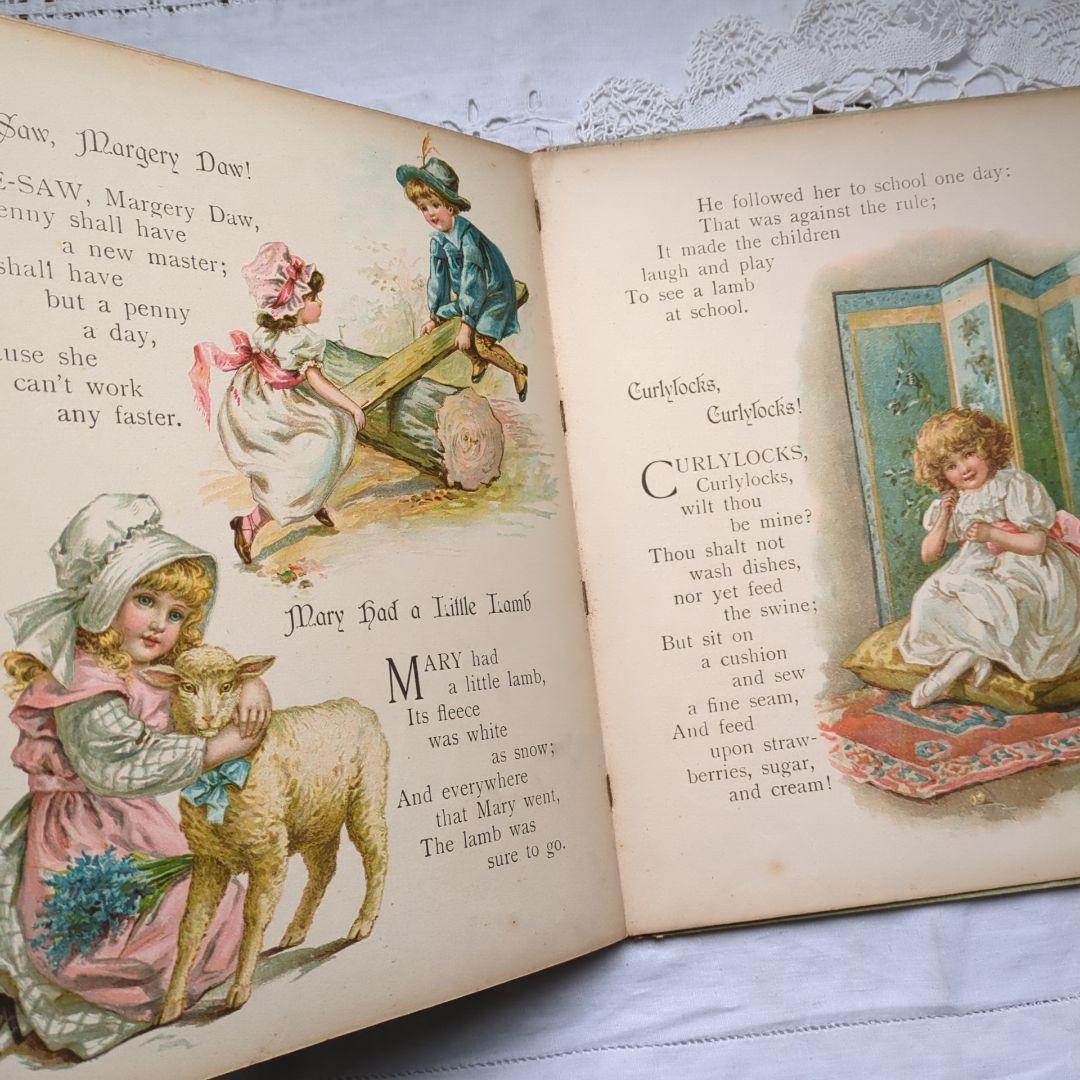 Saw, Margery Daw!
E-SAW, Margery Daw,
enny shall have
a new master;
shall have
but a penny
a day,
use she
can't work
any faster.
Mary Had a Little Lamb
MARY had
a little lamb,
Its fleece
was white
as snow;
And everywhere
that Mary went,
The lamb was
sure to go.
He followed her to school one day:
That was against the rule;
It made the children
laugh and play
To see a lamb
at school.
Curlylocks,
Curlylocks!
CURLYLOCKS,
Curlylocks,
wilt thou
be mine?
Thou shalt not
wash dishes,
nor yet feed
the swine;
But sit on
a cushion
and sew
a fine seam,
And feed
upon straw-
berries, sugar,
and cream!